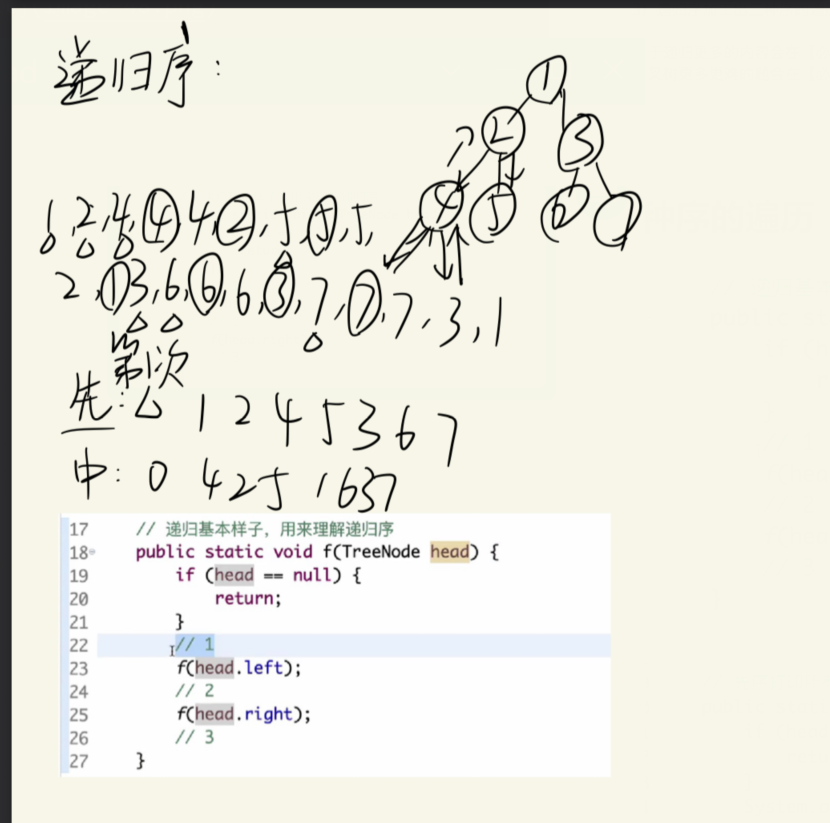 递归序:
1
2
3
4
5
6
7
1,2,4,④4,②,5,⑤,5,
2,①3,6,⑥,6,③,7,⑦,7,3,1
第1次
先: △ 1 2 4 5 3 6 7
中: 0 4 2 5 1 6 3 7
17 // 递归基本样子，用来理解递归序
18 public static void f(TreeNode head) {
19 if (head == null) {
20 return;
21 }
22 // 1
23 f(head.left);
24 // 2
25 f(head.right);
26 // 3
27 }